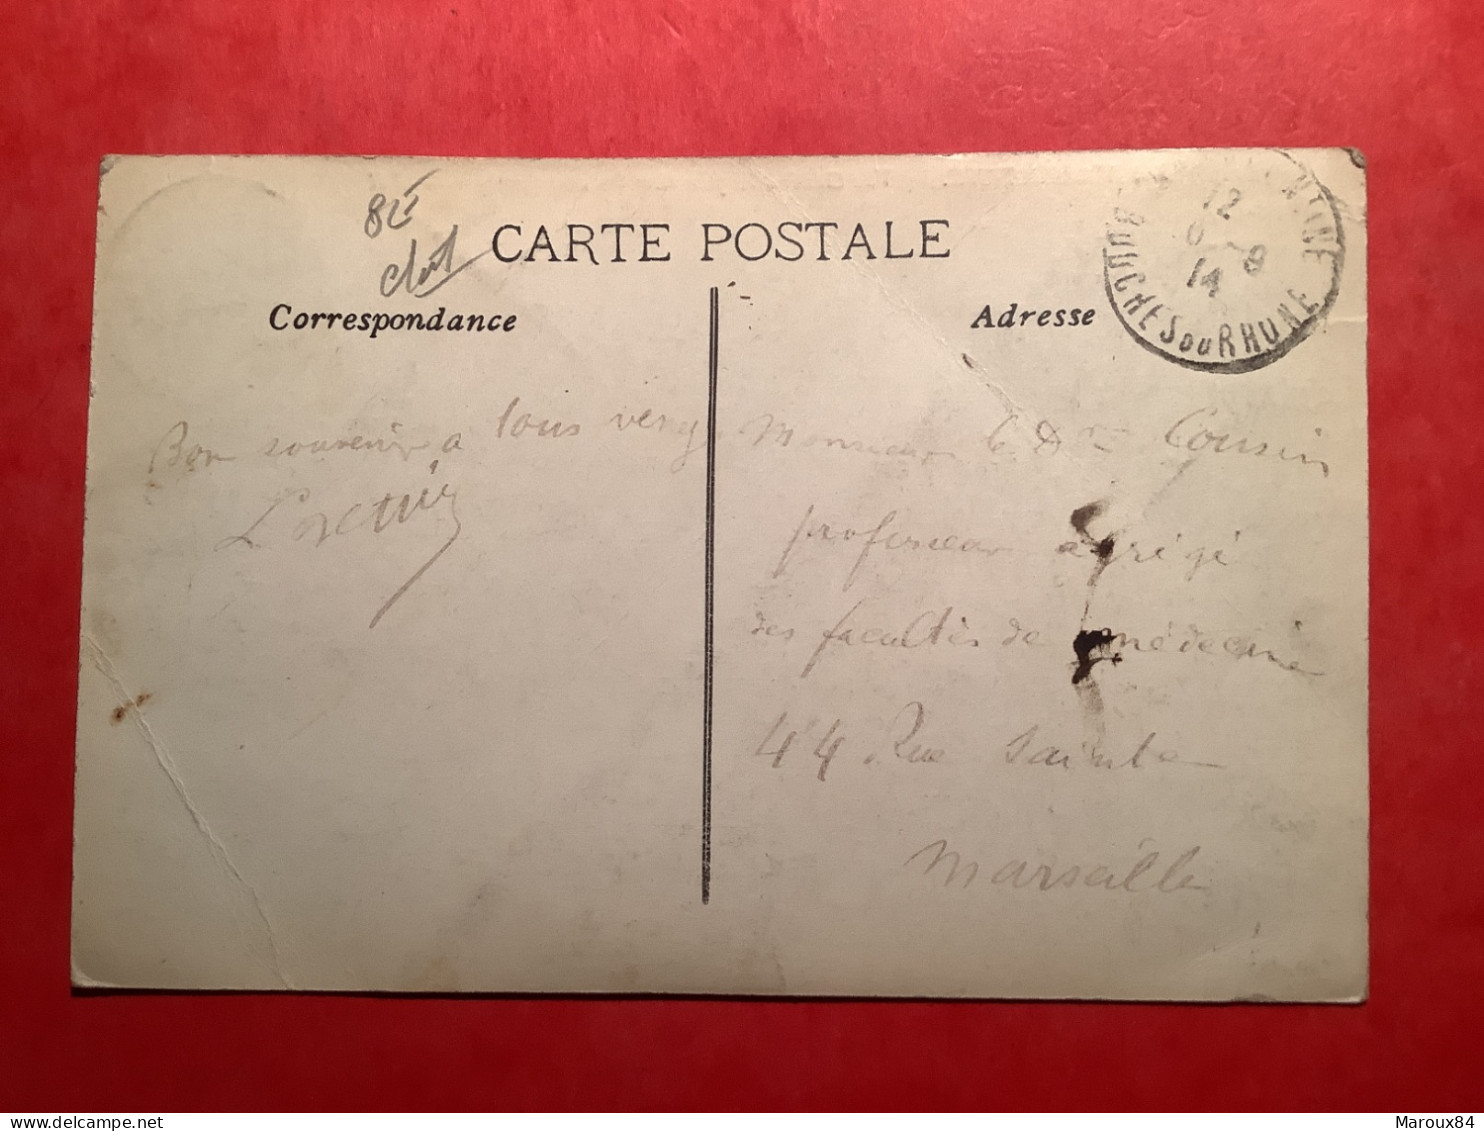 CARTE POSTALE
Correspondance
Adresse
BOUCHES DU RHONE
12
14
Bon souvenir a tous
Monsieur le Dr Cousin
professeur agrégé
des facultés de médecine
44 Rue Sainte
Marseille
delcampe.net
Maroux84